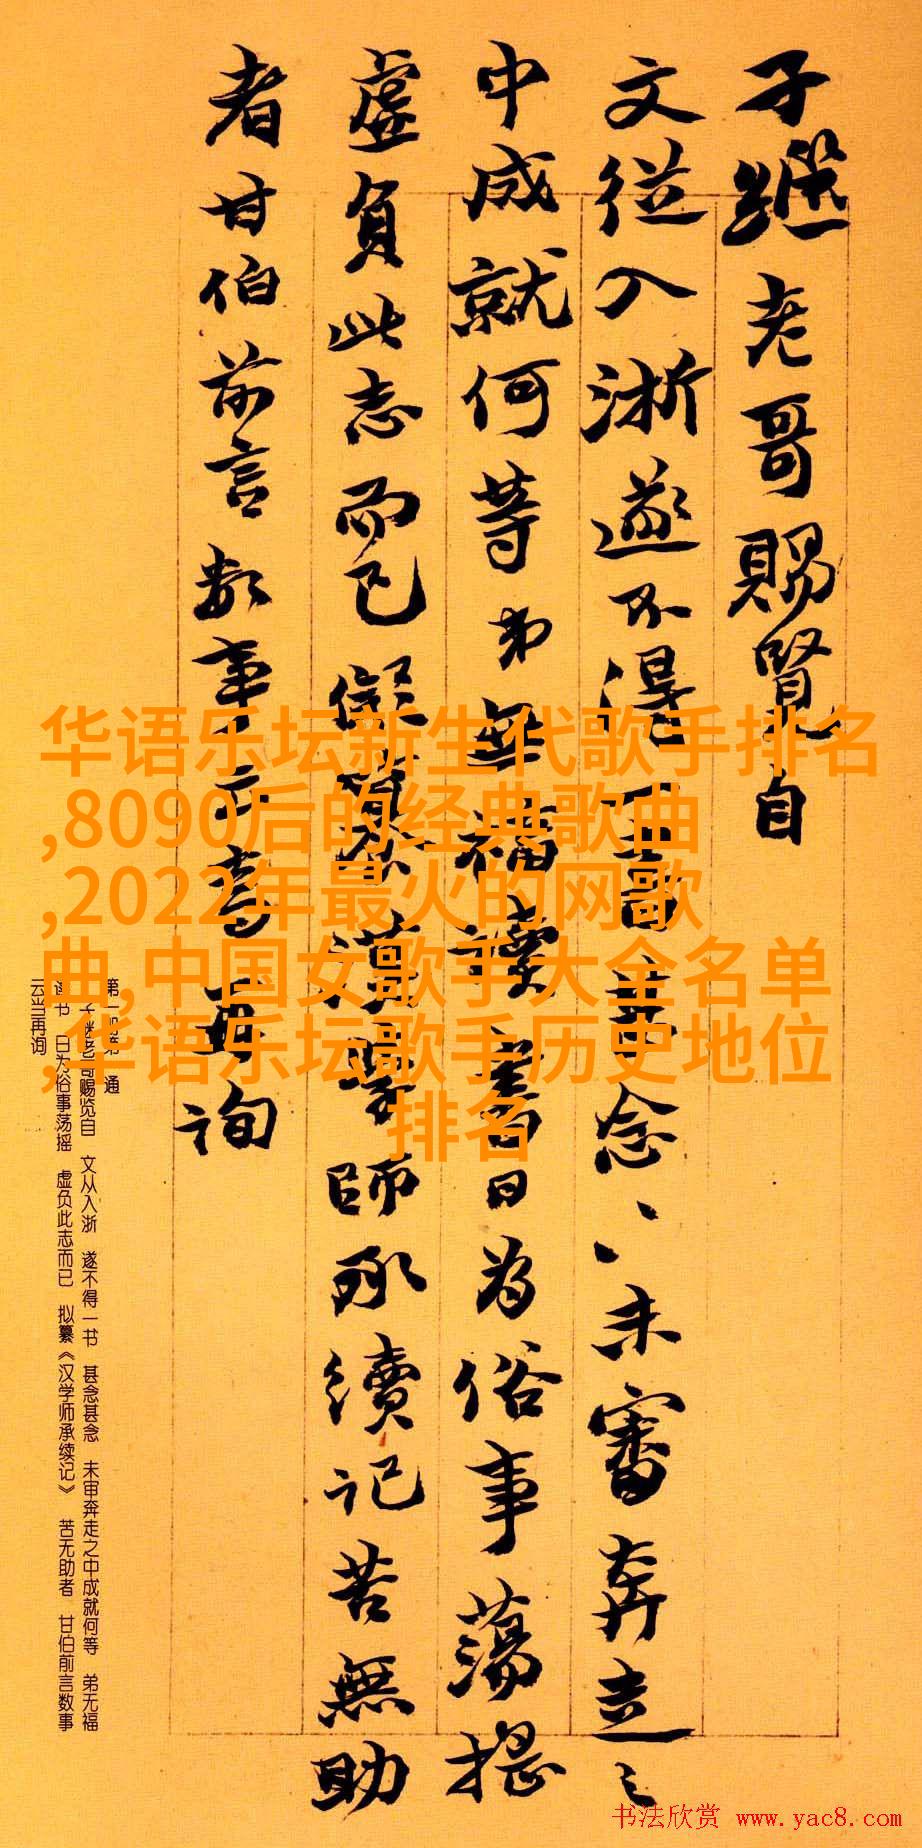 子繼老哥賜覽自
文從入浙遂不得一書甚念〻未審奔走之
中成就何等弟無福讀書日為俗事蕩摇
虛負此志而已儗纂漢學師承續記苦無助
者甘伯前言數事云當再詢
华语乐坛新生代歌手排名
,8090后的经典歌曲
,2022年最火的网歌
曲,中国女歌手大全名单
,华语乐坛歌手历史地位
排名
第一 第 通
子继老哥赐览自 文从入浙 遂不得一书 甚念甚念 未审奔走之中成就何等 弟无福
读书 日为俗事荡摇 虚负此志而已 拟纂《汉学师承续记》 苦无助者 甘伯前言数事
云当再询
书法欣赏 www.yac8.com